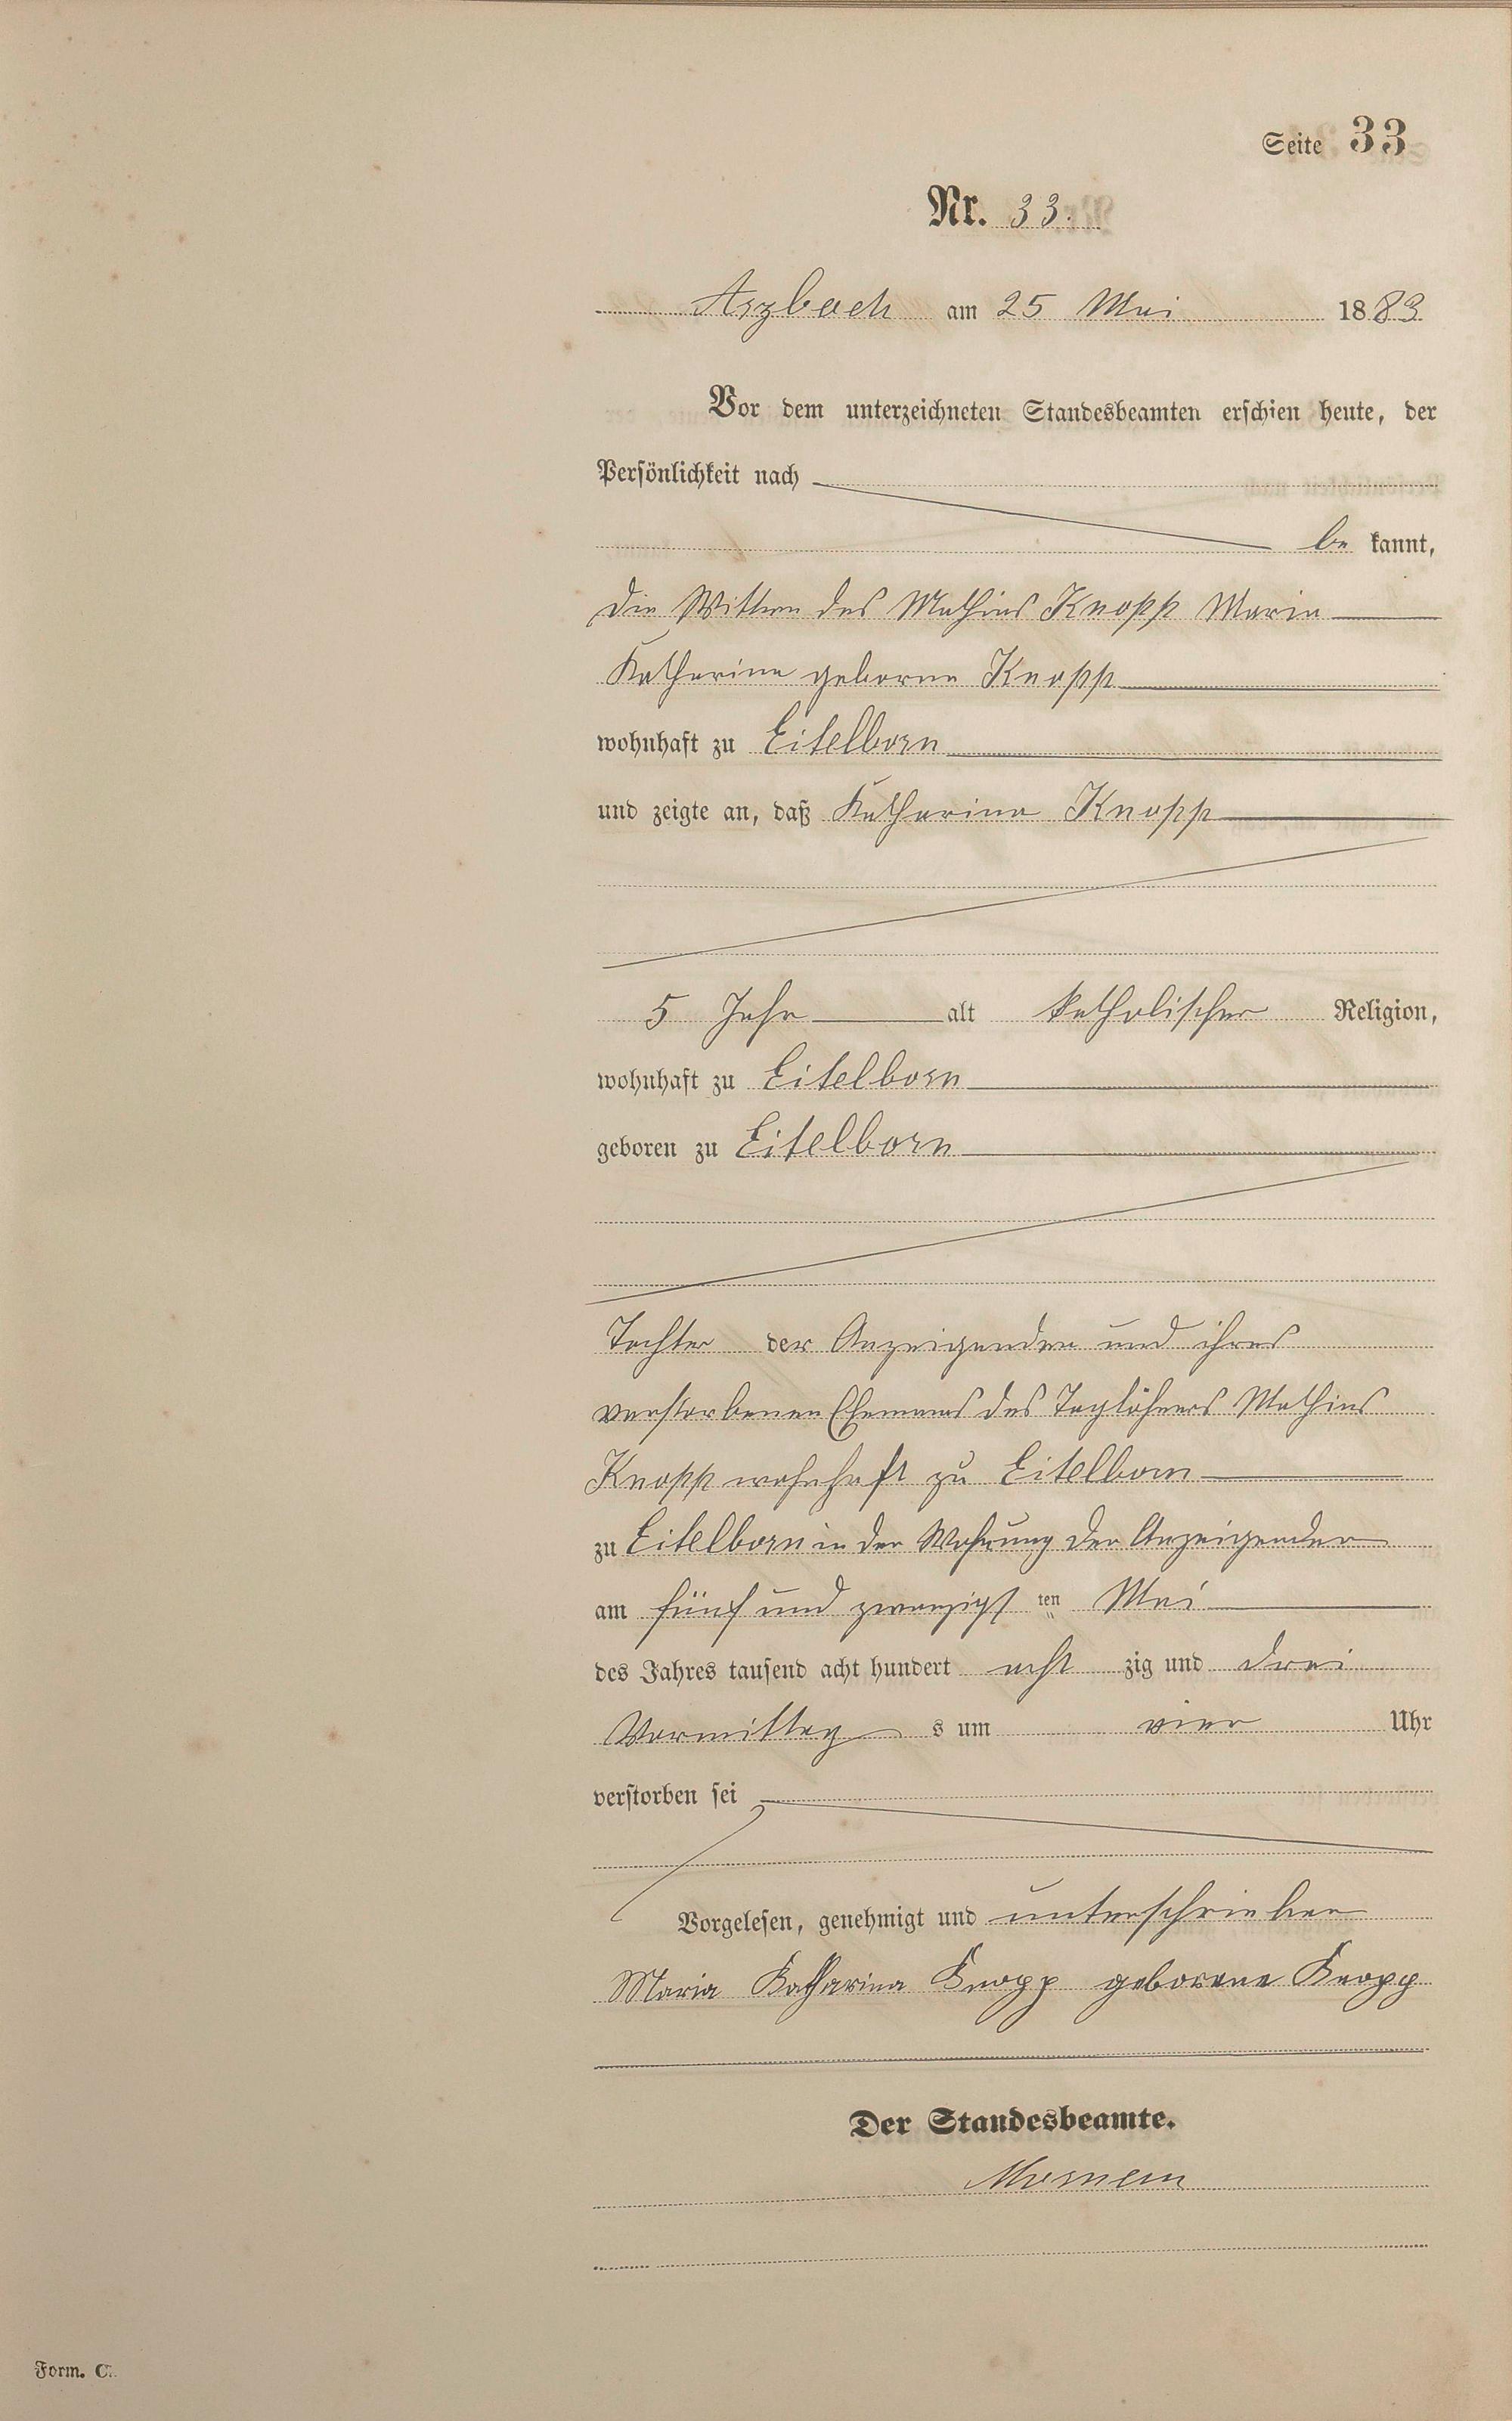 Seite 33
Nr. 33.
Arzbach am 25 Mai 1883
Vor dem unterzeichneten Standesbeamten erschien heute, der
Persönlichkeit nach
be kannt,
die Wittwe des Mathias Knopp Maria
Katharina geborne Knopp
wohnhaft zu Eitelborn
und zeigte an, daß Katharina Knopp
5 Jahr alt katholischer Religion,
wohnhaft zu Eitelborn
geboren zu Eitelborn
Tochter der Anzeigenden und ihres
verstorbenen Ehemans des Taglöhners Mathias
Knopp wohnhaft zu Eitelborn
zu Eitelborn in der Wohnung der Anzeigenden
am fünf und zwanzigs ten Mai
des Jahres tausend acht hundert acht zig und drei
Vormittag s um vier Uhr
verstorben sei
Vorgelesen, genehmigt und unterschrieben
Maria Katharina Knopp geborene Knopp
Der Standesbeamte.
Form. C.